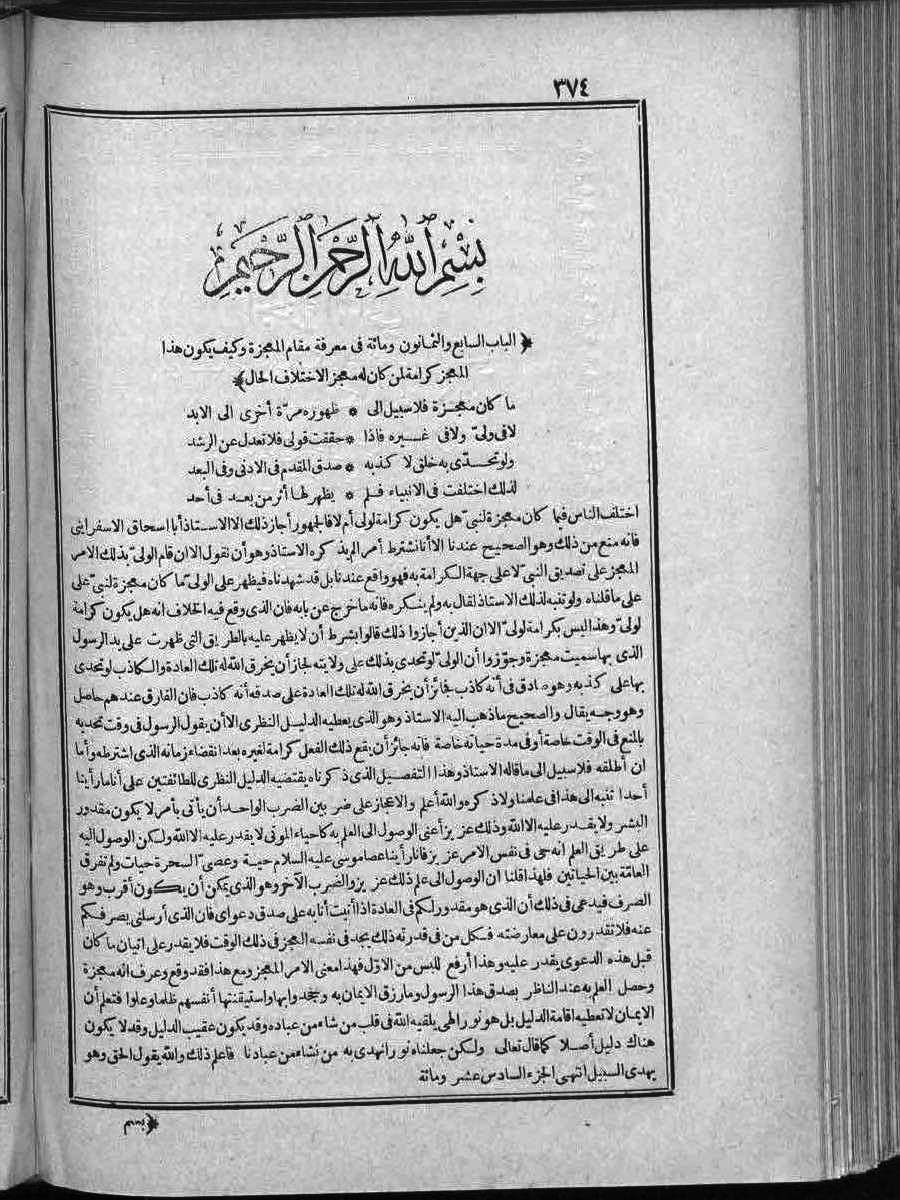 ٣٧٤
بِسْمِ ٱللَّهِ ٱلرَّحْمَنِ ٱلرَّحِيمِ
﴿الباب السابع والثمانون ومائة فى معرفة مقام المعجزة وكيف يكون هذا
المعجز كرامة لمن كان له معجز الاختلاف الحال﴾
ما كان معجزة فلا سبيل الى * ظهوره مرّة أخرى الى الابد
لا فى ولىّ ولا فى غيره فاذا * حققت قولى فلا تعدل عن الرشد
ولو تحدّى به خلق لا كذبه * صدق المقدم فى الادنى وفى البعد
لذلك اختلفت فى الانبياء فلم * يظهر لها أثر من بعد فى أحد
اختلف الناس فيما كان معجزة لنبىّ هل يكون كرامة لولى أم لا فالجهور أجاز ذلك الا الاستاذ أبا اسحاق الاسفراينى
فانه منع من ذلك وهو الصحيح عندنا الا أنا نشترط أمرا لم يذكره الاستاذ وهو أن نقول الا ان قام الولىّ بذلك الامر
المعجز على تصديق النبىّ لا على جهة الكرامة به فهو واقع عندنا بل قد شهدناه فيظهر على الولىّ ما كان معجزة لنبىّ على
على ما قلناه ولو تنبه لذلك الاستاذ لقال به ولم ينكره فانه ما خرج عن بابه فان الذى وقع فيه الخلاف انه هل يكون كرامة
لولىّ وهذا ليس بكرامة لولىّ الا ان الذين أجازوا ذلك قالوا بشرط أن لا يظهر عليه بالطريق التى ظهرت على يد الرسول
الذى بها سميت معجزة وجوّزوا أن الولىّ لو تحدى بذلك على ولايته لجاز أن يخرق الله له تلك العادة والكاذب لو تحدى
بها على كذبه وهو صادق فى أنه كاذب فجائز أن يخرق الله له تلك العادة على صدقه أنه كاذب فان الفارق عندهم حاصل
وهو وجه يقال والصحيح ما ذهب اليه الاستاذ وهو الذى يعطيه الدليل النظرى الا أن يقول الرسول فى وقت تحديه
بالمنع فى الوقت خاصة أو فى مدة حياته خاصة فانه جائز أن يقع ذلك الفعل كرامة لغيره بعد انقضاء زمانه الذى اشترطه وأما
ان أطلقه فلا سبيل الى ما قاله الاستاذ وهذا التفصيل الذى ذكرناه يقتضيه الدليل النظرى للطائفتين على أنا ما رأينا
أحدا تنبه الى هذا فى علمنا ولا ذكره والله أعلم والاعجاز على ضربين الضرب الواحد أن يأتى بأمر لا يكون مقدور
البشر ولا يقدر عليه الا الله وذلك عزيز أعنى الوصول الى العلم به كاحياء الموتى لا يقدر عليه الا الله ولكن الوصول اليه
على طريق العلم انه حى فى نفس الامر عزيز فانا رأينا عصا موسى عليه السلام حية وعصىّ السحرة حيات ولم تفرق
العامّة بين الحياتين فلهذا قلنا ان الوصول الى علم ذلك عزيز والضرب الآخر وهو الذى يمكن أن يكون أقرب وهو
الصرف فيدعى فى ذلك أن الذى هو مقدور لكم فى العادة اذا أتيت أنا به على صدق دعواى فان الذى أرسلنى يصرفكم
عنه فلا تقدرون على معارضته فكل من فى قدرته ذلك يجد فى نفسه العجز فى ذلك الوقت فلا يقدر على اتيان ما كان
قبل هذه الدعوى يقدر عليه وهذا أرفع للبس من الاوّل فهذا معنى الامر المعجز ومع هذا فقد وقع وعرف انه معجزة
وحصل العلم به عند الناظر بصدق هذا الرسول وما رزق الايمان به وجحدوا بها واستيقنتها أنفسهم ظلما وعلوا فتعلم أن
الايمان لا تعطيه اقامة الدليل بل هو نور الهى يلقيه الله فى قلب من شاء من عباده وقد يكون عقيب الدليل وقد لا يكون
هناك دليل أصلا كما قال تعالى ولكن جعلناه نورا نهدى به من نشاء من عبادنا فاعلم ذلك والله يقول الحق وهو
يهدى السبيل انتهى الجزء السادس عشر ومائة
﴿بسم